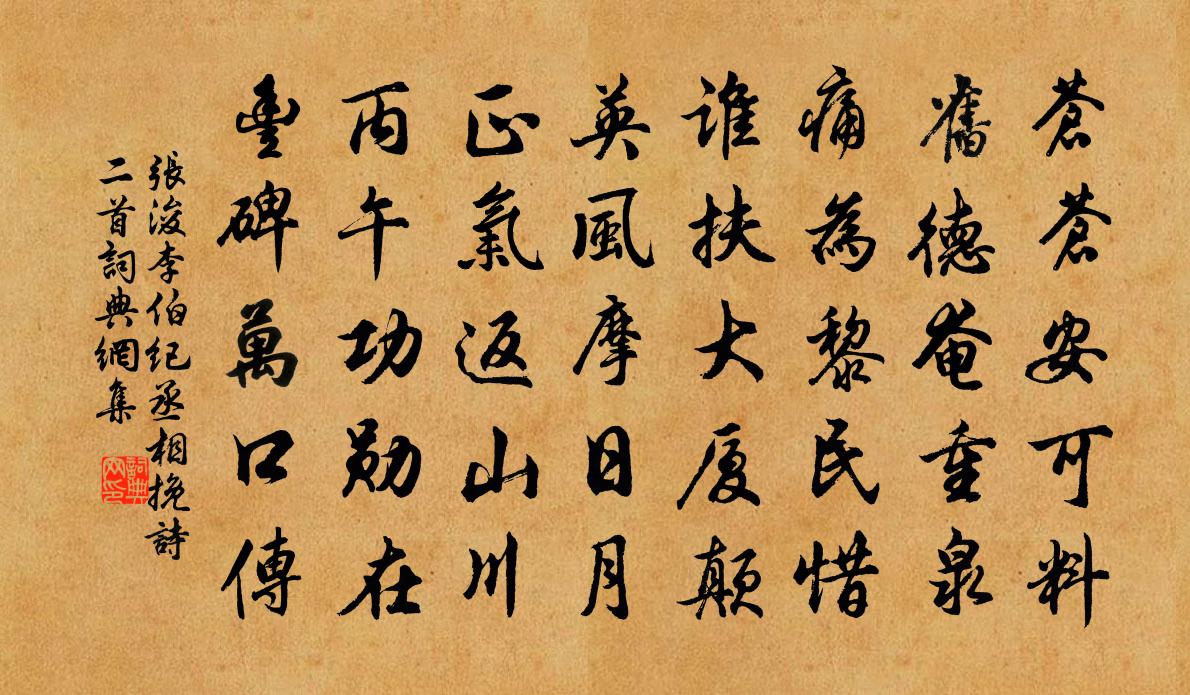 蒼蒼安可料
舊德奄重泉
痛為黎民惜
誰扶大厦顛
英風摩日月
正氣返山川
丙午功勛在
豐碑萬口傳
張浚李伯紀丞相挽詩
二首詞典網集
詞典
网印